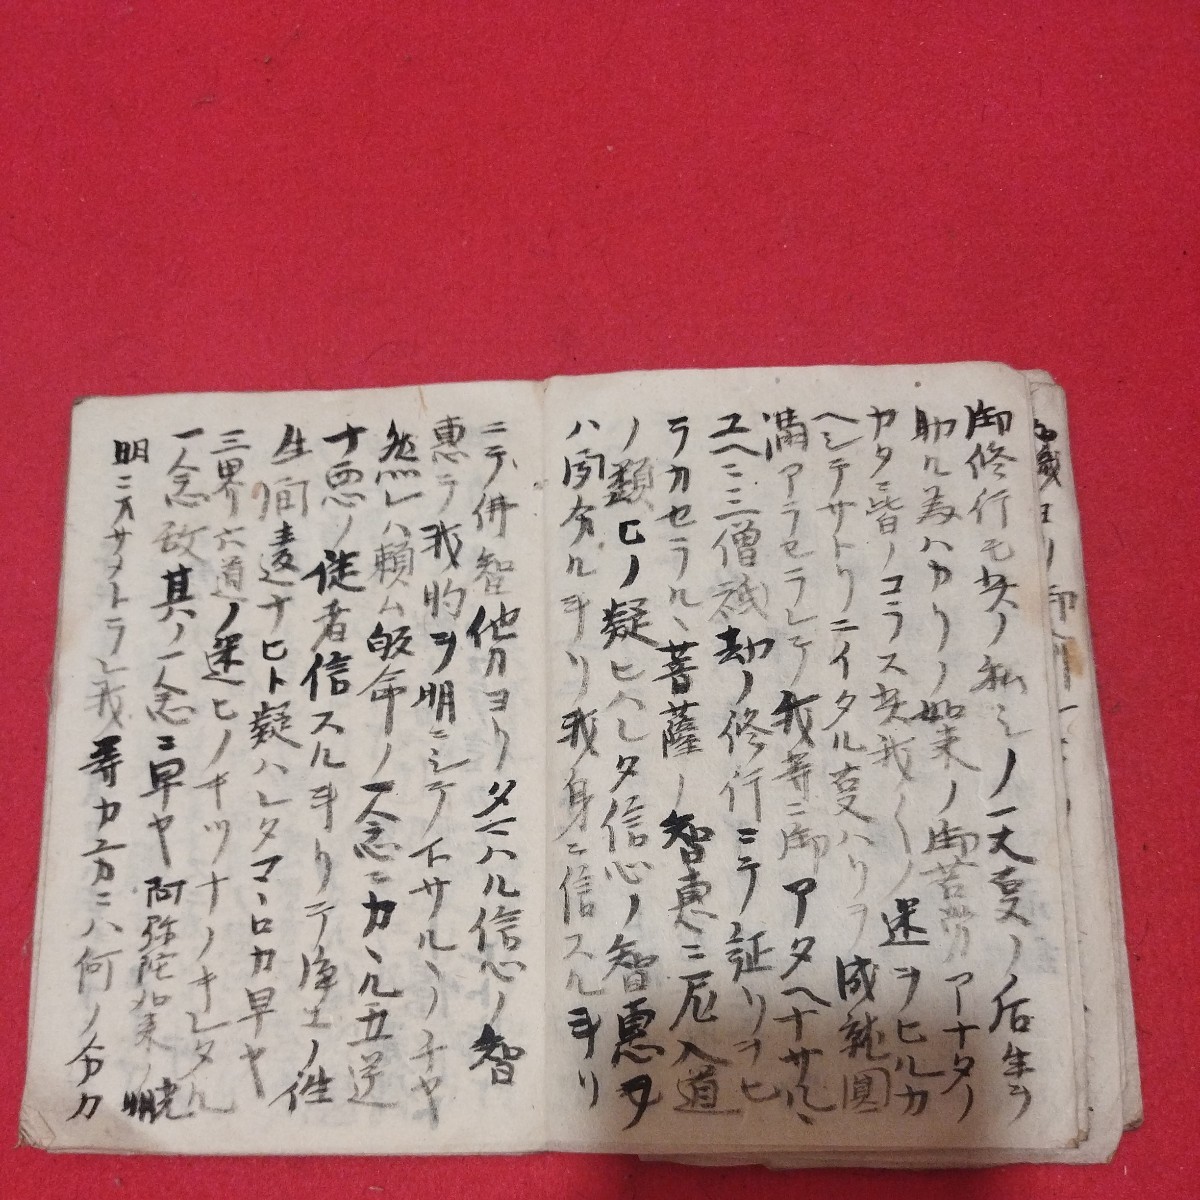 御修行モ共ノ私シノ一大事ノ后生ヲ
助ル為ハカリノ如来ノ御苦労アナタノ
カタ皆ノコラス共我〱ノ迷ヲヒルカ
ヘシテサトリニイタル事ハリヲ成就圓
満アラセラレテ我等ニ御アタヘナサル丶
ユヘニ三僧祇劫ノ修行ニテノ証リヲヒ
ラカセラル丶菩薩ノ智恵ニ尼入道
ノ類ヒノ疑ヒハレタ信心ノ智恵ヲ
ハ聞分ルヨリ我身ニ信スルヨリ
ニテ併智他力ヨリタマハル信心ノ智
恵テ我胸ヲ明ニシテ下サル丶ノチヤ
然レハ頼ム皈命ノ一念ニカ丶ル五逆
十悪ノ徒者信スルヨリテ浄土ノ往
生間違ナヒト疑ハレタマ丶ロカ早ヤ
三界六道ノ迷ヒノキツナノキレタル
一念故其ノ一念ニ早ヤ阿弥陀如来ノ光
明ニオサメトラレ我等カ上カニハ何ノ分カ